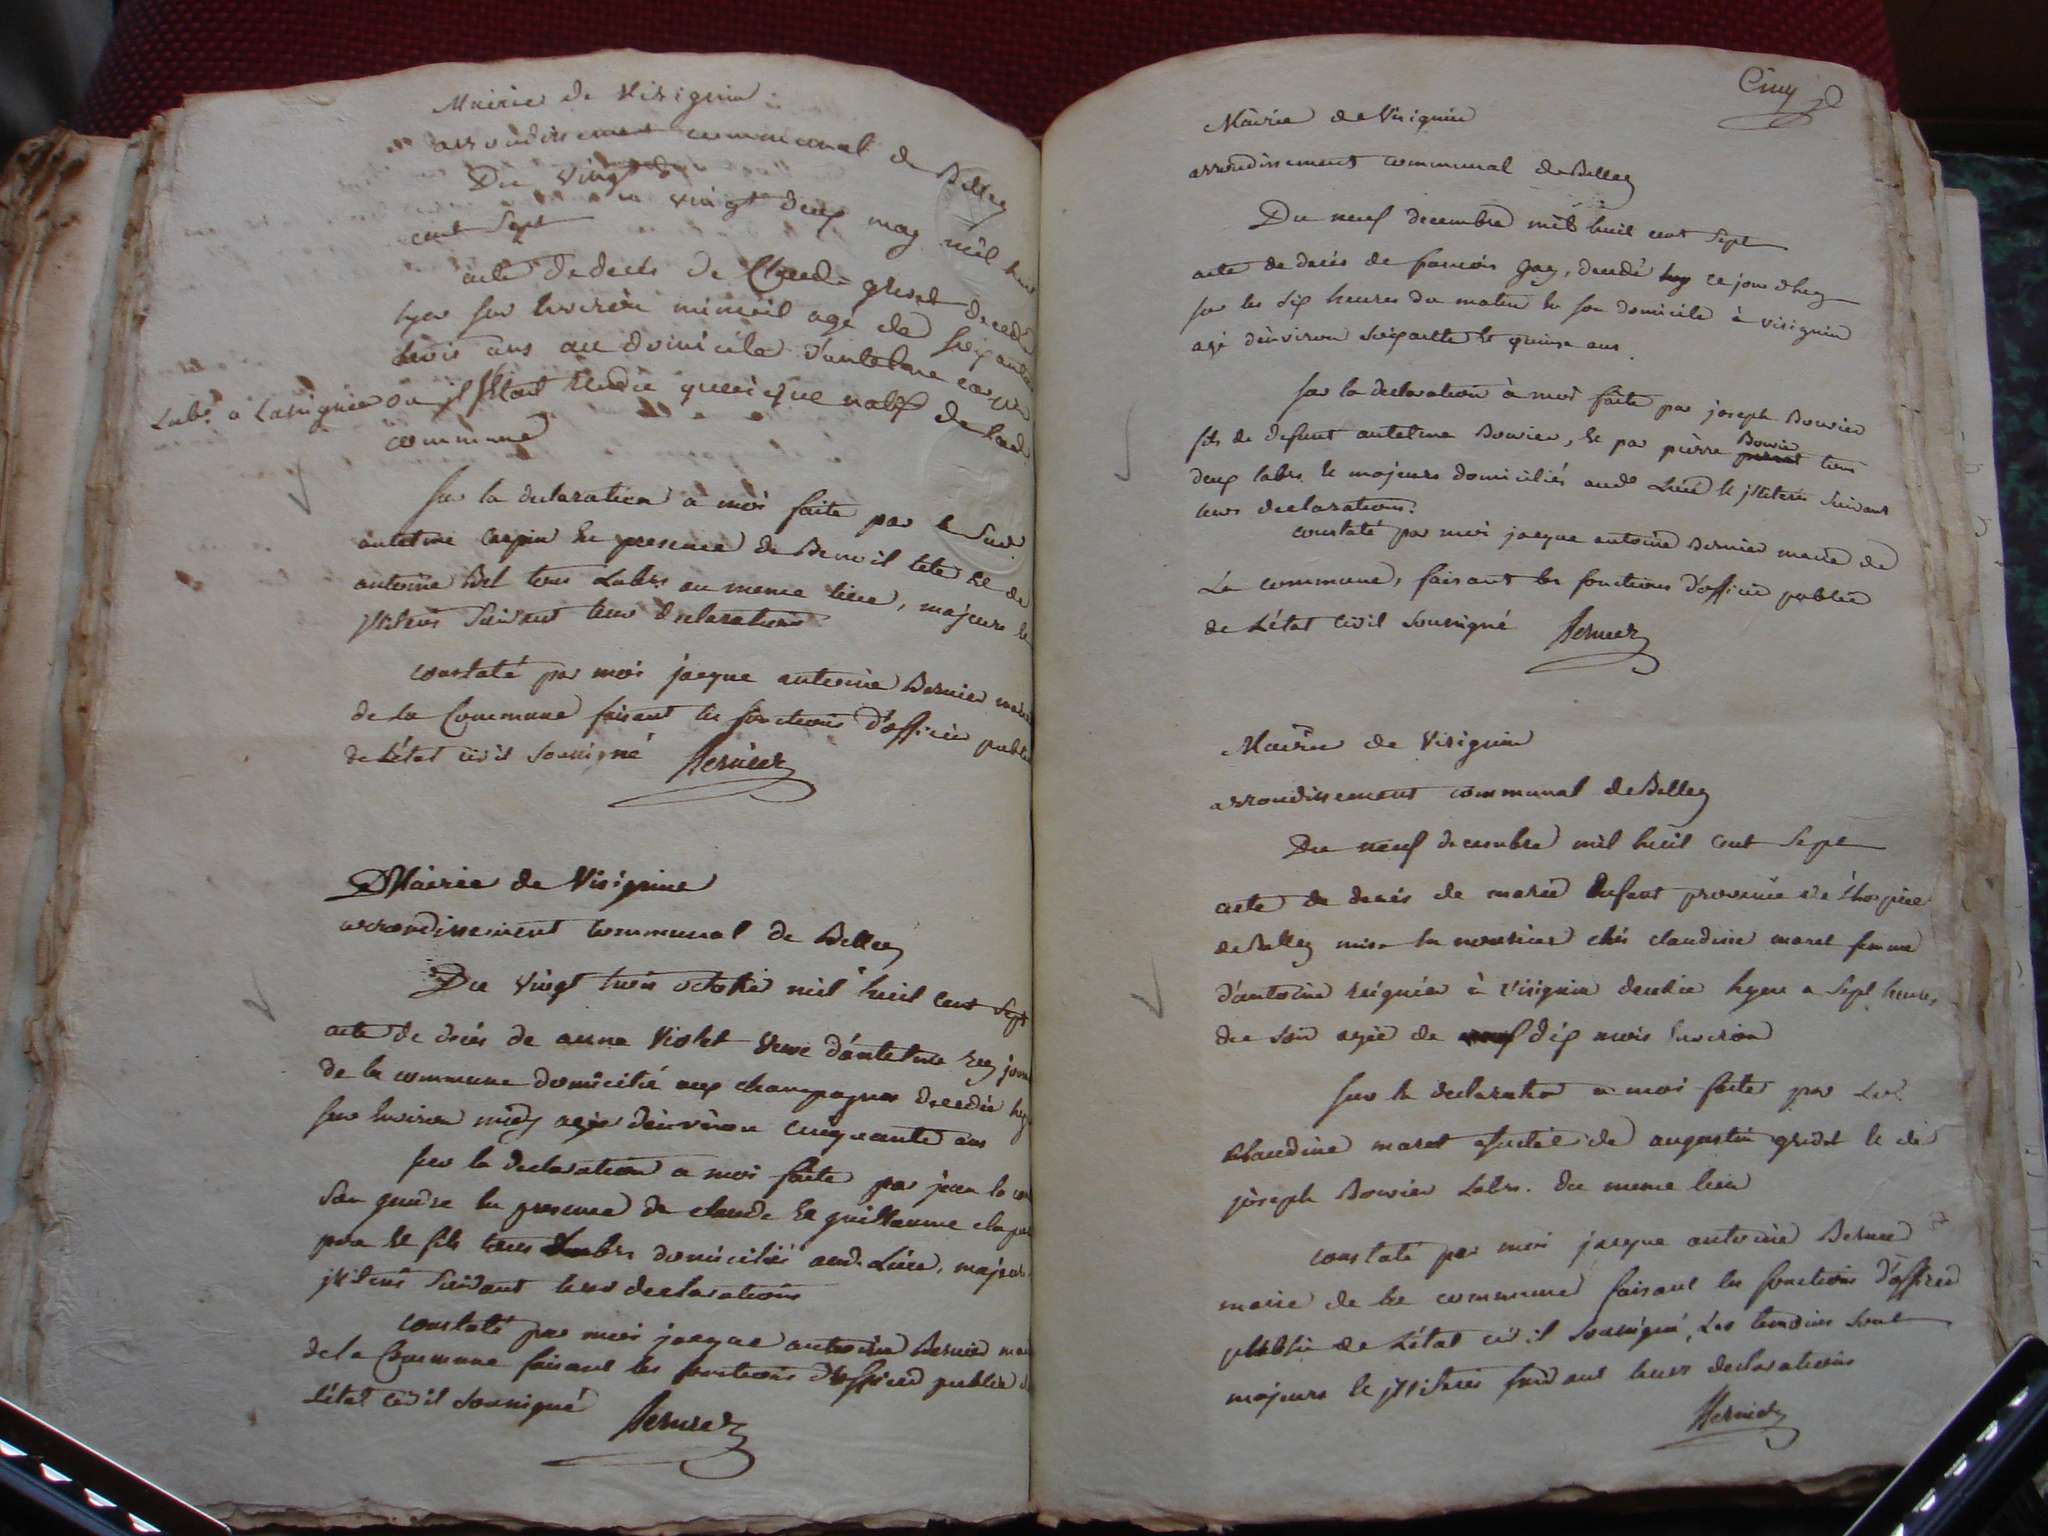 Mairie de Virignin
arrondissement communal de Belley
Du vingt
vingt deux may mil huit
cent sept
acte de deces de Claude grisot decedé
hyer sur environ minuit agé de soixante
trois ans au domicile d'antelme carpin
Labr. a Lassignieu ou il setant rendu quoi que natif de lad.
commune
sur la declaration a moi faite par le sud.
antelme carpin en presence de Benoit tete et de
antoine Bel tous Labrs au meme lieu, majeurs et
illiterés suivant leur declaration
constaté par moi jacque antoine Bernier maire
de la Commune faisant les fonctions d'officier public
de L'état civil soussigné Bernier
Mairie de Virignin
arrondissement communal de Belley
Du vingt trois octobre mil huit cent sept
acte de décés de anne Violet veuve d'antelme rey
de la commune domicilié aux champagnes decedée hyer
sur environ midy agée d'environ cinquante ans
sur la declaration a moi faite par jean
son gendre en presence de claude et guillaume
pere et fils tous Labrs domiciliés aud. Lieu, majeurs
illiterés suivant leur declarations
constaté par moi jacque antoine Bernier maire
de la Commune faisant les fonctions d'officier public de
L'état civil soussigné
Bernier
Cinq
Mairie de Virignin
arrondissement communal de Belley
Du neuf decembre mil huit cent sept
acte de decés de francois Gay, decedé huy ce jour dhuy
sur les six heures du matin en son domicile à virignin
agé d'environ soixante et quinze ans.
sur la declaration à moi faite par joseph Bouvier
fils de defunt antelme Bouvier, et par pierre Bouvier tous
deux labrs et majeurs domiciliés aud. Lieu et illiterés suivant
leurs declarations.
constaté par moi jacque antoine Bernier maire de
La commune, faisant les fonctions d'officier public
de L'état civil soussigné Bernier
Mairie de Virignin
arrondissement communal de Belley
Du neuf decembre mil huit cent sept
acte de decés de marie enfant provenue de L'hospice
de Belley mise en nourrice chés claudine maret femme
d'antoine reignier à virignin decedée hyer a sept heures
du soir agée de dix mois environ
sur la declaration a moi faite par Lad.
claudine maret assistée de augustin grisot et de
joseph Bouvier Labrs. du meme lieu
constaté par moi jacque antoine Bernier
maire de la commune faisant les fonctions d'officier
public de L'état civil soussigné, Les temoins sont
majeurs et illiterés suivant leurs declarations
Bernier